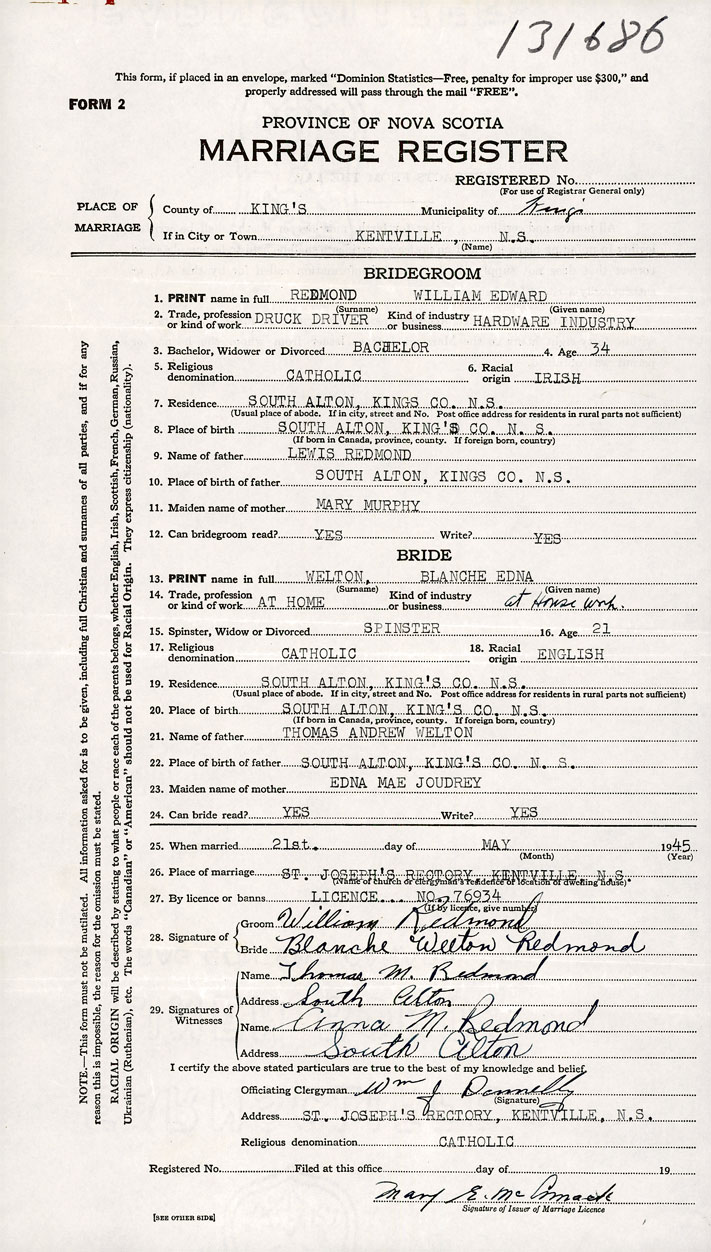 131686
This form, if placed in an envelope, marked “Dominion Statistics—Free, penalty for improper use $300,” and
properly addressed will pass through the mail “FREE”.
FORM 2
PROVINCE OF NOVA SCOTIA
MARRIAGE REGISTER
REGISTERED No.
(For use of Registrar General only)
PLACE OF MARRIAGE
County of KING'S Municipality of Kings
If in City or Town KENTVILLE, N.S.
(Name)
BRIDEGROOM
1. PRINT name in full REDMOND WILLIAM EDWARD
(Surname) (Given name)
2. Trade, profession or kind of work DRUCK DRIVER Kind of industry or business HARDWARE INDUSTRY
3. Bachelor, Widower or Divorced BACHELOR 4. Age 34
5. Religious denomination CATHOLIC 6. Racial origin IRISH
7. Residence SOUTH ALTON, KINGS CO. N.S.
(Usual place of abode. If in city, street and No. Post office address for residents in rural parts not sufficient)
8. Place of birth SOUTH ALTON, KING'S CO. N. S.
(If born in Canada, province, county. If foreign born, country)
9. Name of father LEWIS REDMOND
10. Place of birth of father SOUTH ALTON, KINGS CO. N.S.
11. Maiden name of mother MARY MURPHY
12. Can bridegroom read? YES Write? YES
BRIDE
13. PRINT name in full WELTON, BLANCHE EDNA
(Surname) (Given name)
14. Trade, profession or kind of work AT HOME Kind of industry or business at House work.
15. Spinster, Widow or Divorced SPINSTER 16. Age 21
17. Religious denomination CATHOLIC 18. Racial origin ENGLISH
19. Residence SOUTH ALTON, KING'S CO. N.S.
(Usual place of abode. If in city, street and No. Post office address for residents in rural parts not sufficient)
20. Place of birth SOUTH ALTON, KING'S CO. N.S.
(If born in Canada, province, county. If foreign born, country)
21. Name of father THOMAS ANDREW WELTON
22. Place of birth of father SOUTH ALTON, KING'S CO. N. S.
23. Maiden name of mother EDNA MAE JOUDREY
24. Can bride read? YES Write? YES
25. When married 21st. day of MAY 1945
(Month) (Year)
26. Place of marriage ST. JOSEPH'S RECTORY KENTVILLE, N.S.
(Name of church or clergyman's residence or location of dwelling house)
27. By licence or banns LICENCE... NO. 76934
(If by licence, give number)
28. Signature of
Groom William Redmond
Bride Blanche Welton Redmond
29. Signatures of Witnesses
Name Thomas M. Redmond
Address South Alton
Name Anna M. Redmond
Address South Alton
I certify the above stated particulars are true to the best of my knowledge and belief.
Officiating Clergyman Wm J Donnelly
(Signature)
Address ST. JOSEPH'S RECTORY, KENTVILLE, N.S.
Religious denomination CATHOLIC
Registered No. Filed at this office day of 19
Mary E. McCormack
Signature of Issuer of Marriage Licence
[SEE OTHER SIDE]
NOTE.—This form must not be mutilated. All information asked for is to be given, including full Christian and surnames of all parties, and if for any
reason this is impossible, the reason for the omission must be stated.
RACIAL ORIGIN will be described by stating to what people or race each of the parents belongs, whether English, Irish, Scottish, French, German, Russian,
Ukrainian (Ruthenian), etc. The words “Canadian” or “American” should not be used for Racial Origin. They express citizenship (nationality).